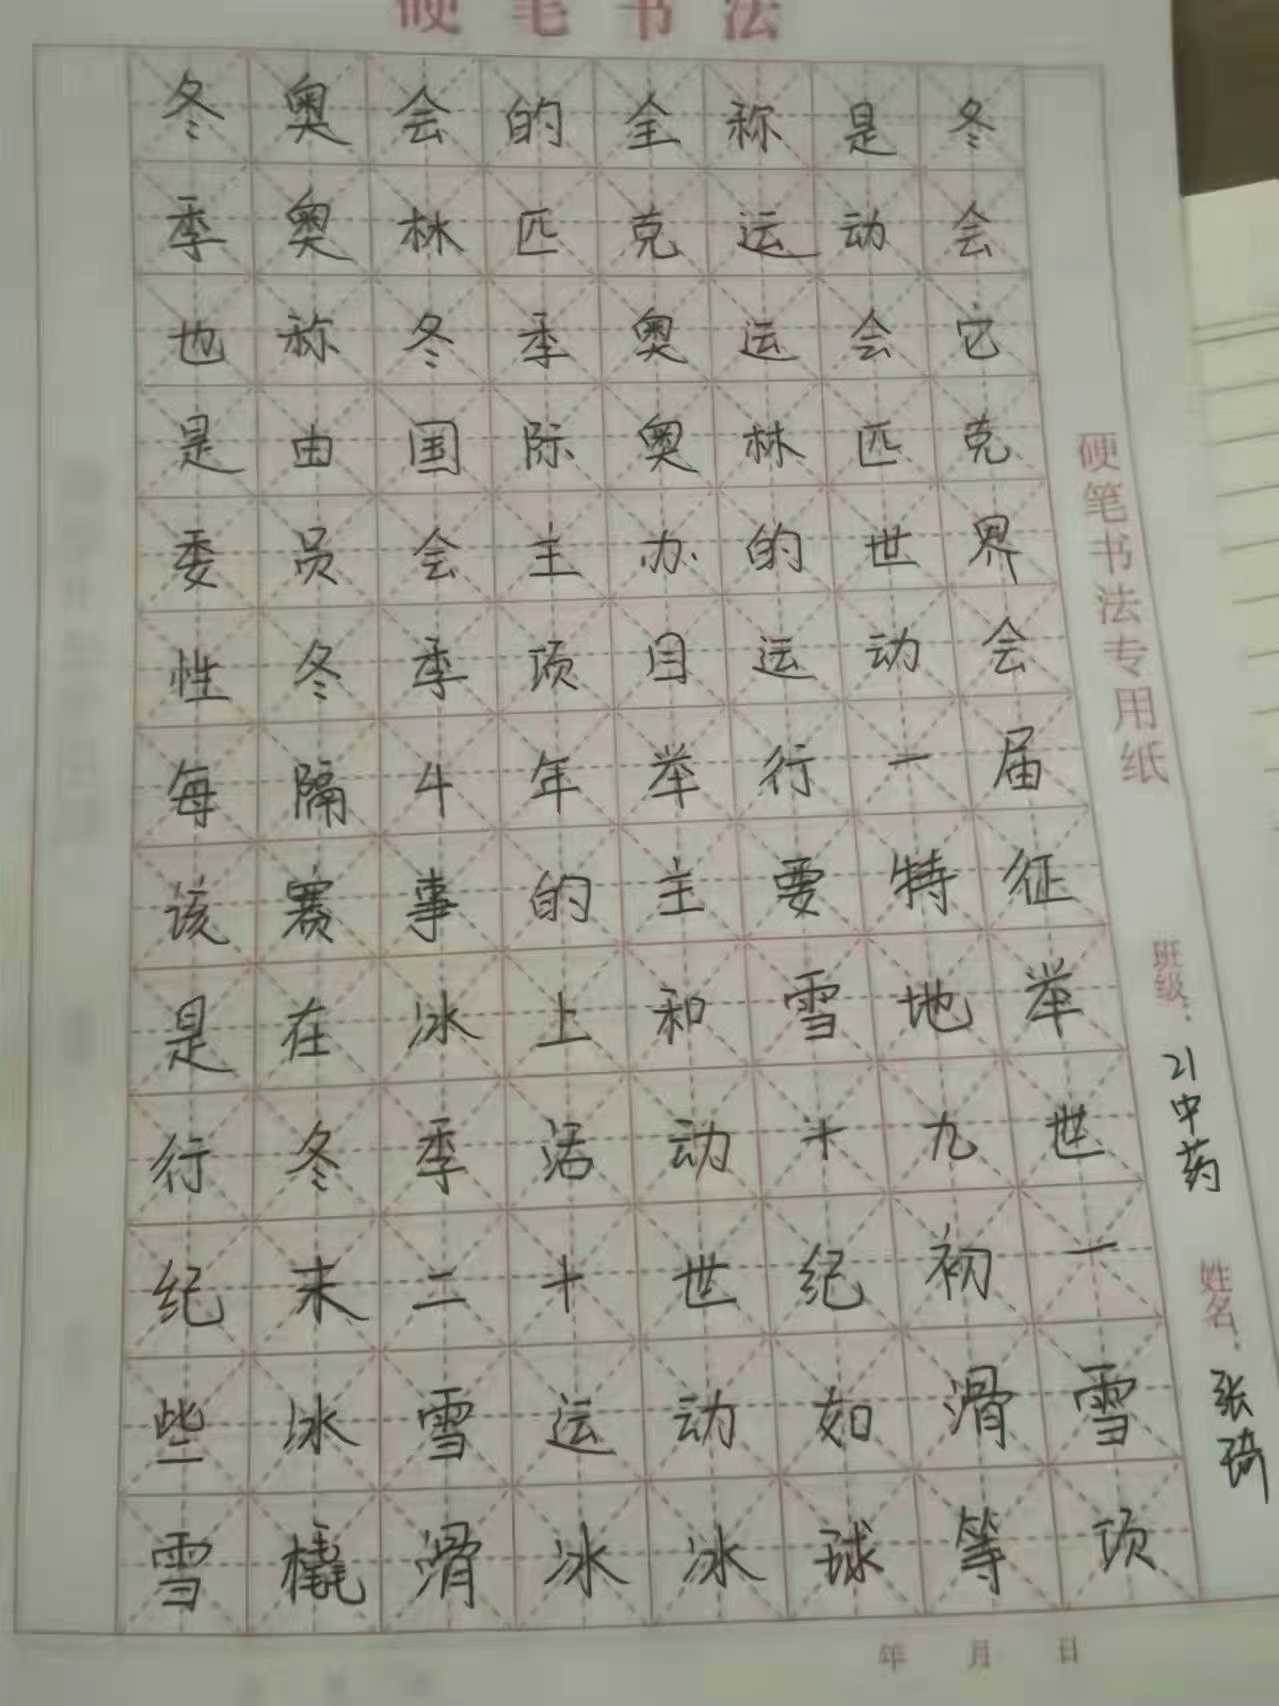 硬笔书法
冬奥会的全称是冬
季奥林匹克运动会
也称冬季奥运会它
是由国际奥林匹克
委员会主办的世界
性冬季项目运动会
每隔4年举行一届
该赛事的主要特征
是在冰上和雪地举
行冬季活动十九世
纪末二十世纪初一
些冰雪运动如滑雪
雪橇滑冰冰球等项
硬笔书法专用纸
班级：21中药
姓名：张琦
年 月 日